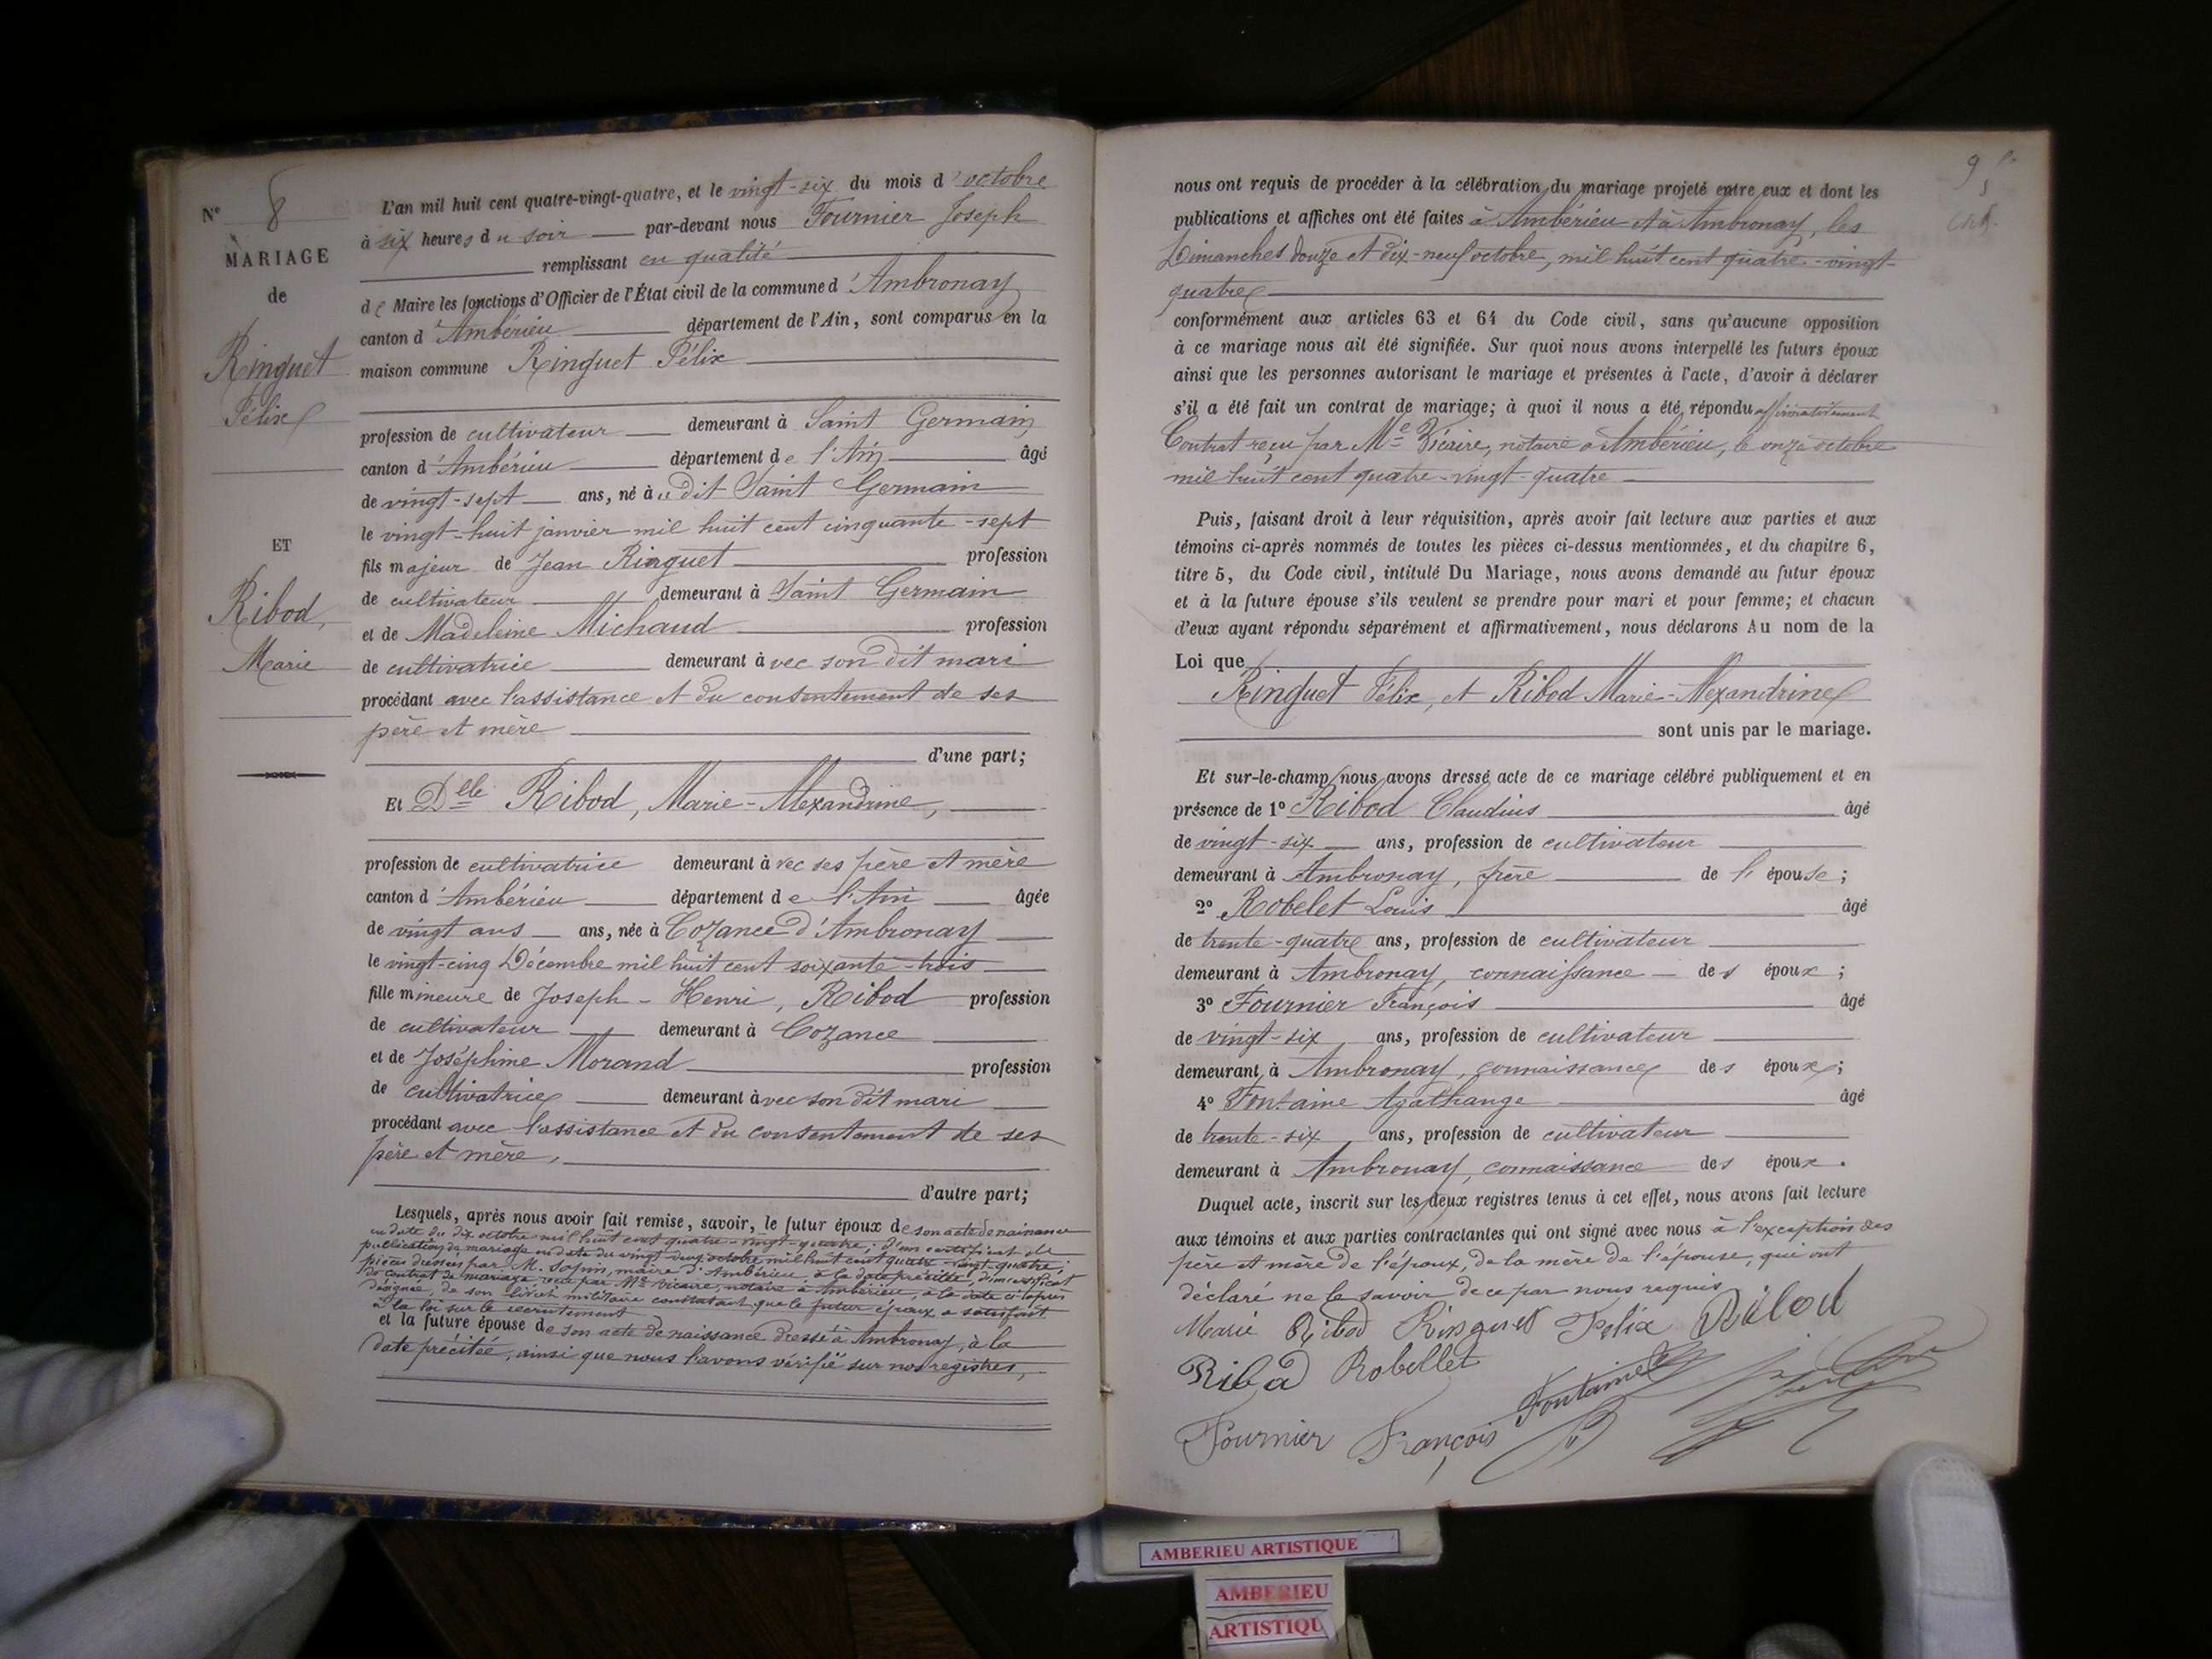 N° 8
MARIAGE
de
Ringuet
Félix
ET
Ribod,
Marie
L'an mil huit cent quatre-vingt-quatre, et le vingt-six du mois d'octobre
à six heures du soir par-devant nous Fournier Joseph
remplissant en qualité
de Maire les fonctions d'Officier de l'État civil de la commune d'Ambronay
canton d'Ambérieu département de l'Ain, sont comparus en la
maison commune Ringuet Félix
profession de cultivateur demeurant à Saint Germain
canton d'Ambérieu département de l'Ain âgé
de vingt-sept ans, né à u dit Saint Germain
le vingt-huit janvier mil huit cent cinquante-sept
fils majeur de Jean Ringuet profession
de cultivateur demeurant à Saint Germain
et de Madeleine Michaud profession
de cultivatrice demeurant avec son dit mari
procédant avec l'assistance et du consentement de ses
père et mère
d'une part;
Et Dlle Ribod, Marie-Alexandrine,
profession de cultivatrice demeurant avec ses père et mère
canton d'Ambérieu département de l'Ain âgée
de vingt ans ans, née à Cozance d'Ambronay
le vingt-cinq Décembre mil huit cent soixante-trois
fille mineure de Joseph-Henri, Ribod profession
de cultivateur demeurant à Cozance
et de Joséphine Morand profession
de cultivatrice demeurant avec son dit mari
procédant avec l'assistance et du consentement de ses
père et mère,
d'autre part;
Lesquels, après nous avoir fait remise, savoir, le futur époux de son acte de naissance
en date du dix octobre mil huit cent quatre-vingt-quatre; d'un certificat de
publication de mariage en date du vingt-deux octobre mil huit cent quatre-vingt-quatre;
pièces dressées par M. maire d'Ambérieu, à la date précitée, d'un certificat
de contrat de mariage reçu par Me Vicaire, notaire à Ambérieu, à la date ci-après
désignée, de son livret militaire constatant que le futur époux a satisfait
à la loi sur le recrutement
et la future épouse de son acte de naissance dressé à Ambronay, à la
date précitée, ainsi que nous l'avons vérifié sur nos registres,
9
nous ont requis de procéder à la célébration du mariage projeté entre eux et dont les
publications et affiches ont été faites à Ambérieu et à Ambronay, les
Dimanches douze et dix-neuf octobre, mil huit cent quatre-vingt-
quatre
conformément aux articles 63 et 64 du Code civil, sans qu'aucune opposition
à ce mariage nous ait été signifiée. Sur quoi nous avons interpellé les futurs époux
ainsi que les personnes autorisant le mariage et présentes à l'acte, d'avoir à déclarer
s'il a été fait un contrat de mariage; à quoi il nous a été répondu affirmativement
Contrat reçu par Me Vicaire, notaire à Ambérieu, le onze octobre
mil huit cent quatre-vingt-quatre
Puis, faisant droit à leur réquisition, après avoir fait lecture aux parties et aux
témoins ci-après nommés de toutes les pièces ci-dessus mentionnées, et du chapitre 6,
titre 5, du Code civil, intitulé Du Mariage, nous avons demandé au futur époux
et à la future épouse s'ils veulent se prendre pour mari et pour femme; et chacun
d'eux ayant répondu séparément et affirmativement, nous déclarons Au nom de la
Loi que
Ringuet Félix, et Ribod Marie-Alexandrine
sont unis par le mariage.
Et sur-le-champ nous avons dressé acte de ce mariage célébré publiquement et en
présence de 1° Ribod Claudius âgé
de vingt-six ans, profession de cultivateur
demeurant à Ambronay, frère de l'épouse;
2° Robelet Louis âgé
de trente-quatre ans, profession de cultivateur
demeurant à Ambronay, connaissance des époux;
3° Fournier François âgé
de vingt-six ans, profession de cultivateur
demeurant à Ambronay, connaissance des époux;
4° Fontaine Agathange âgé
de trente-six ans, profession de cultivateur
demeurant à Ambronay, connaissance des époux.
Duquel acte, inscrit sur les deux registres tenus à cet effet, nous avons fait lecture
aux témoins et aux parties contractantes qui ont signé avec nous à l'exception des
père et mère de l'époux, de la mère de l'épouse, que ont
déclaré ne le savoir de ce par nous requis
Marie Ribod Ringuet Félix Ribod
Ribod Robellet
Fontaine
Fournier François
AMBERIEU ARTISTIQUE
AMBERIEU
ARTISTIQU